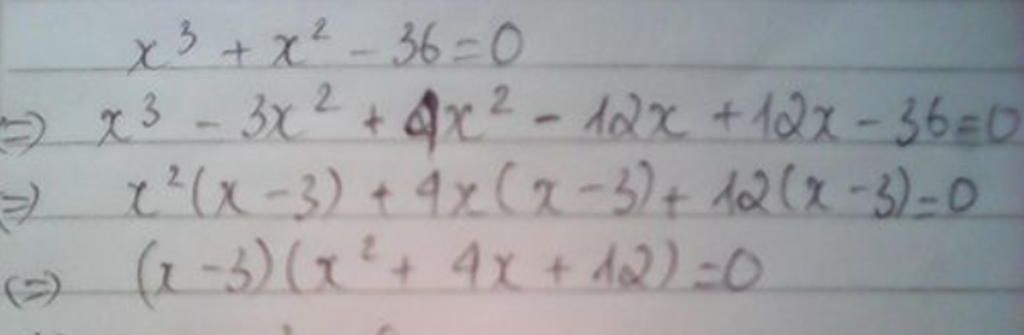 x³ + x² - 36 = 0
⇔) x³ - 3x² + 4x² - 12x + 12x - 36 = 0
⇔) x²(x - 3) + 4x(x - 3) + 12(x - 3) = 0
(⇔) (x - 3)(x² + 4x + 12) = 0